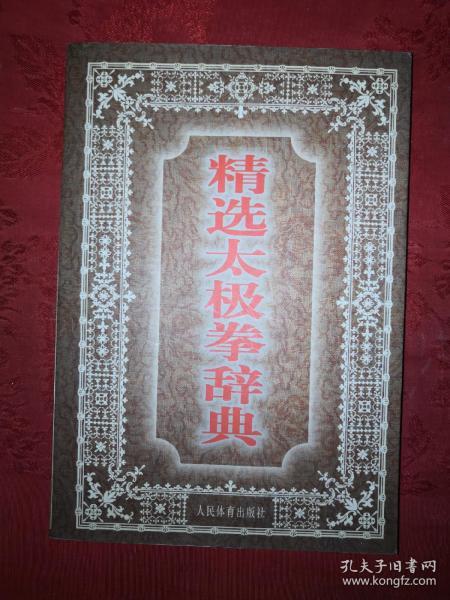 精选太极拳辞典
人民体育出版社
孔夫子旧书网
www.kongfz.com